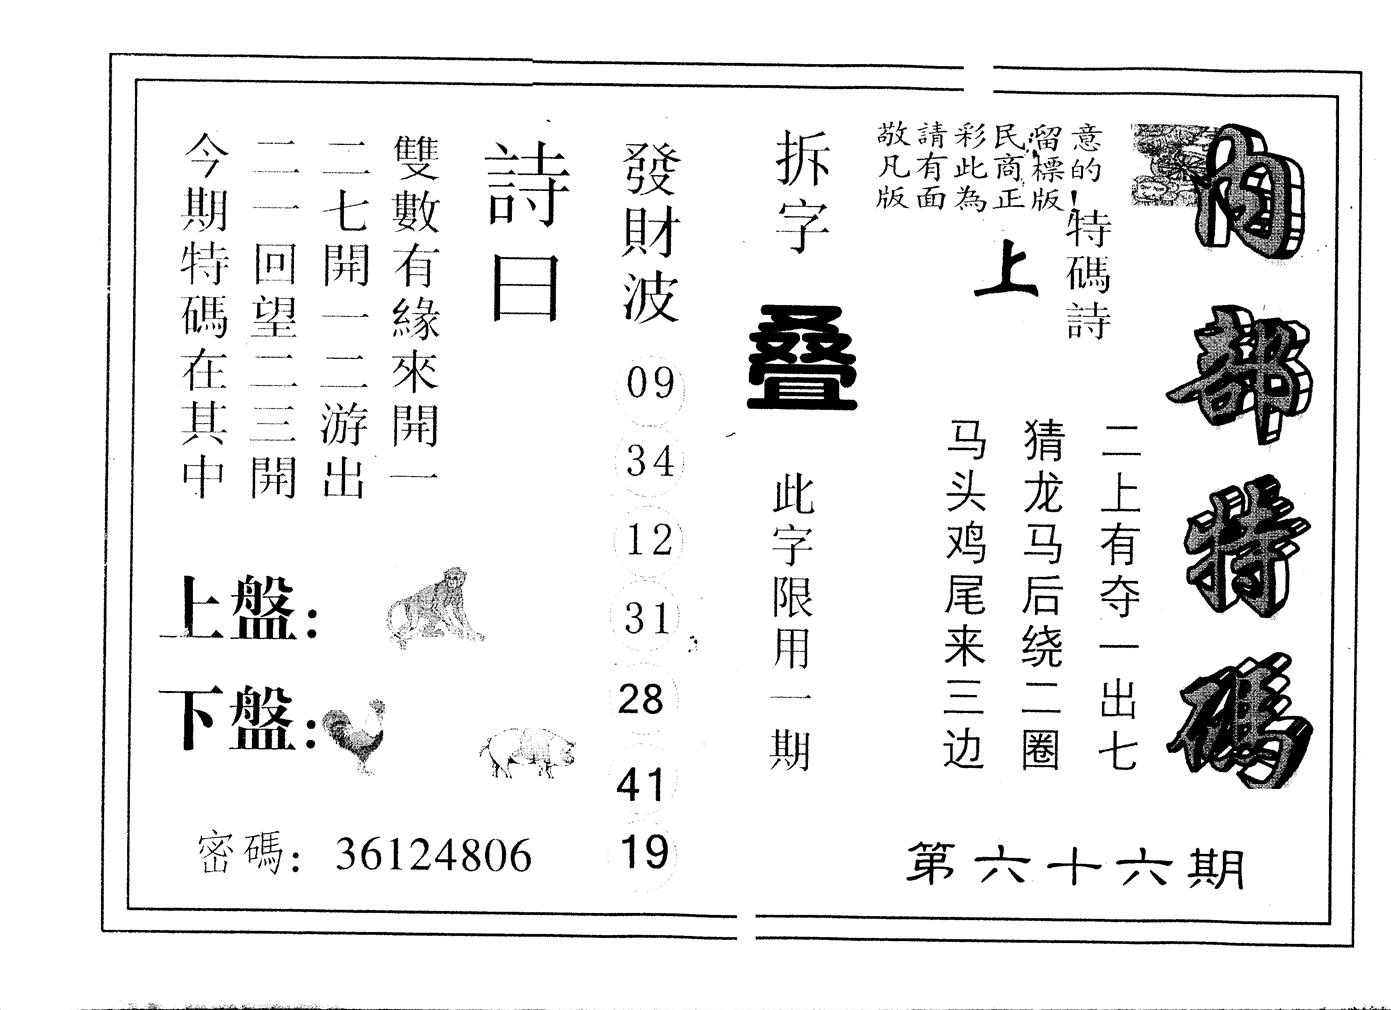 内部特碼
敬請彩民留意
凡有此商標的
版面為正版!
特碼詩
上
二上有夺一出七
猜龙马后绕二圈
马头鸡尾来三边
第六十六期
拆字
叠
此字限用一期
發財波
09
34
12
31
28
41
19
詩曰
雙數有緣來開一
二七開一二游出
二一回望二三開
今期特碼在其中
上盤:
下盤:
密碼: 36124806